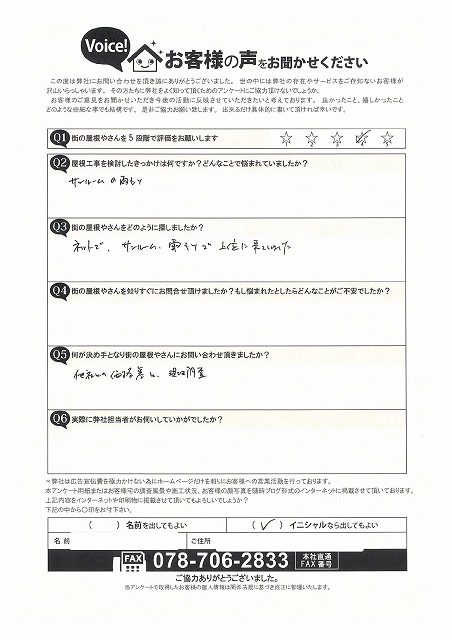 Voice! お客様の声をお聞かせください
この度は弊社にお問い合わせを頂き誠にありがとうございました。世の中には弊社の存在やサービスをご存知ないお客様が
沢山いらっしゃいます。その方たちに弊社をよく知って頂くためのアンケートにご協力頂けないでしょうか。
お客様のご意見をお聞かせいただき今後の活動に反映させていただきたいと考えております。良かったこと、嬉しかったこと
どのような些細な事でも結構です。是非ご協力お願い致します。出来るだけ具体的に書いて頂ければ幸いです。
Q1 街の屋根やさんを5段階で評価をお願いします ☆ ☆ ☆ ☆ ☆
Q2 屋根工事を検討したきっかけは何ですか?どんなことで悩まれていましたか?
サンルームの雨もり
Q3 街の屋根やさんをどのように探しましたか?
ネットで、サンルーム、雨もりで上位に来ていました
Q4 街の屋根やさんを知りすぐにお問合せ頂けましたか?もし悩まれたとしたらどんなことがご不安でしたか?
Q5 何が決め手となり街の屋根やさんにお問い合わせ頂きましたか?
他社との価格差と、現地調査
Q6 実際に弊社担当者がお伺いしていかがでしたか?
※弊社は広告宣伝費を極力かけない為にホームページだけを頼りにお客様への営業活動を行っております。
本アンケート用紙またはお客様宅の調査風景や施工状況、お客様の顔写真を随時ブログ形式のインターネットに掲載させて頂いております。
上記内容をインターネットや印刷物に掲載させて頂いてもよろしいでしょうか?
下記の中から〇印をお付下さい。
( ) 名前を出してもよい ( ✓ ) イニシャルなら出してもよい
名前 ご住所
FAX 078-706-2833 本社直通
FAX番号
ご協力ありがとうございました。
当アンケートで取得したお客様の個人情報は関係法規に基づき厳正に管理いたします。